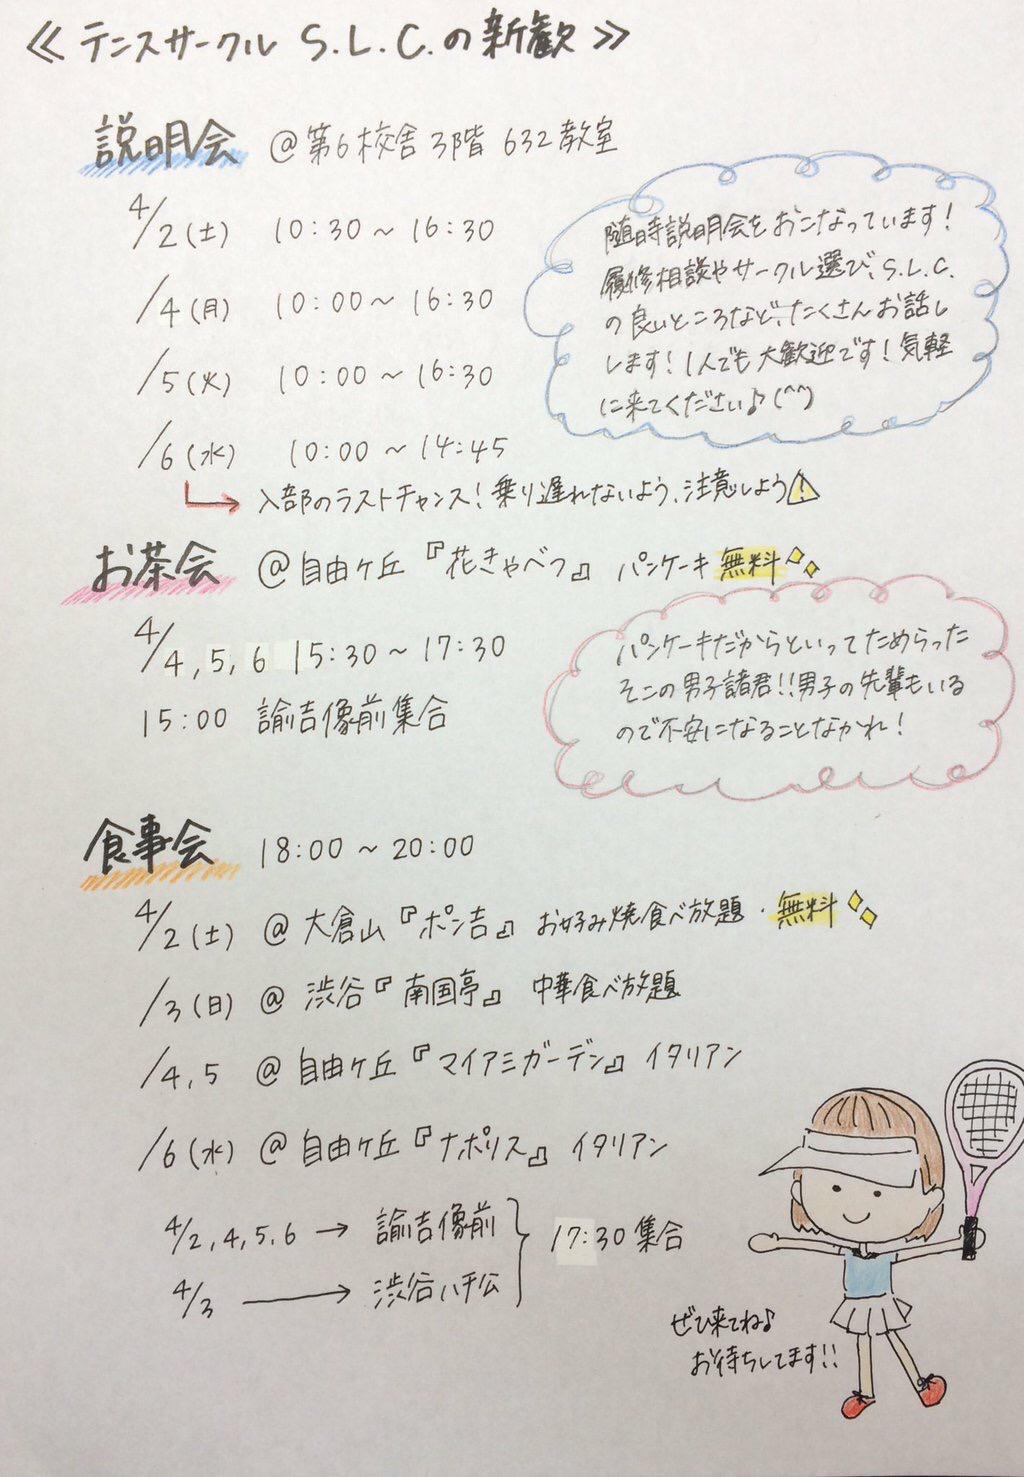 ≪ テニスサークル S.L.C.の新歓 ≫
説明会 @第6校舎 3階 632教室
4/2(土) 10:30～16:30
/4(月) 10:00～16:30
/5(火) 10:00～16:30
/6(水) 10:00～14:45
→ 入部のラストチャンス!乗り遅れないよう、注意しよう⚠
随時説明会をおこなっています!
履修相談やサークル選び、S.L.C.
の良いところなど、たくさんお話し
します!1人でも大歓迎です!気軽
に来てください♪(^^)
お茶会 @自由ケ丘『花きゃべつ』 パンケーキ 無料
4/4,5,6 15:30～17:30
15:00 諭吉像前集合
パンケーキだからといってためらった
そこの男子諸君!!男子の先輩もいる
ので不安になることなかれ!
食事会 18:00～20:00
4/2(土) @大倉山『ポン吉』 お好み焼食べ放題・無料
/3(日) @渋谷『南国亭』 中華食べ放題
/4,5 @自由ケ丘『マイアミガーデン』イタリアン
/6(水) @自由ケ丘『ナポリス』 イタリアン
4/2,4,5,6 → 諭吉像前
4/3 → 渋谷ハチ公
17:30 集合
ぜひ来てね♪
お待ちしてます!!